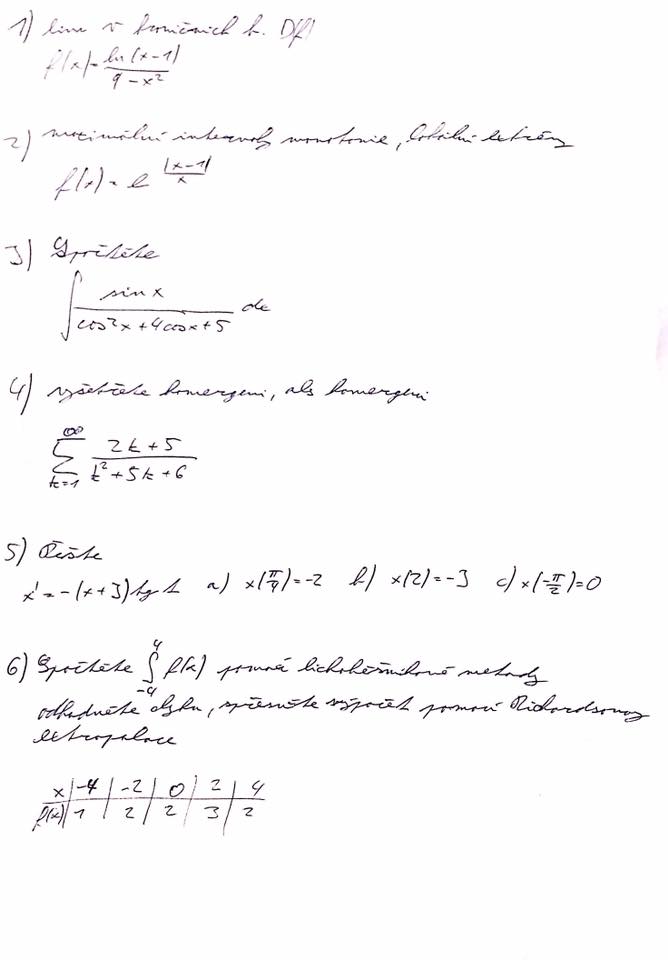 1) lim v hraničních b. D(f)
f(x) = ln(x-1) / 9-x²
2) maximální intervaly monotonie, lokální extrémy
f(x) = e^(|x-1|/x)
3) Spočtěte
∫ sin x / cos²x+4cosx+5 dx
4) vyšetřete konvergenci, abs konvergenci
∑_{k=1}^{∞} 2k+5 / k²+5k+6
5) Řešte
x' = -(x+3) tg t a) x(π/4)=-2 b) x(2)=-3 c) x(-π/2)=0
6) Spočtěte ∫_{-4}^{4} f(x) pomocí lichoběžníkové metody
odhadněte chybu, zpřesněte výpočet pomocí Richardsonovy
extrapolace
x | -4 | -2 | 0 | 2 | 4
f(x) | 1 | 2 | 2 | 3 | 2